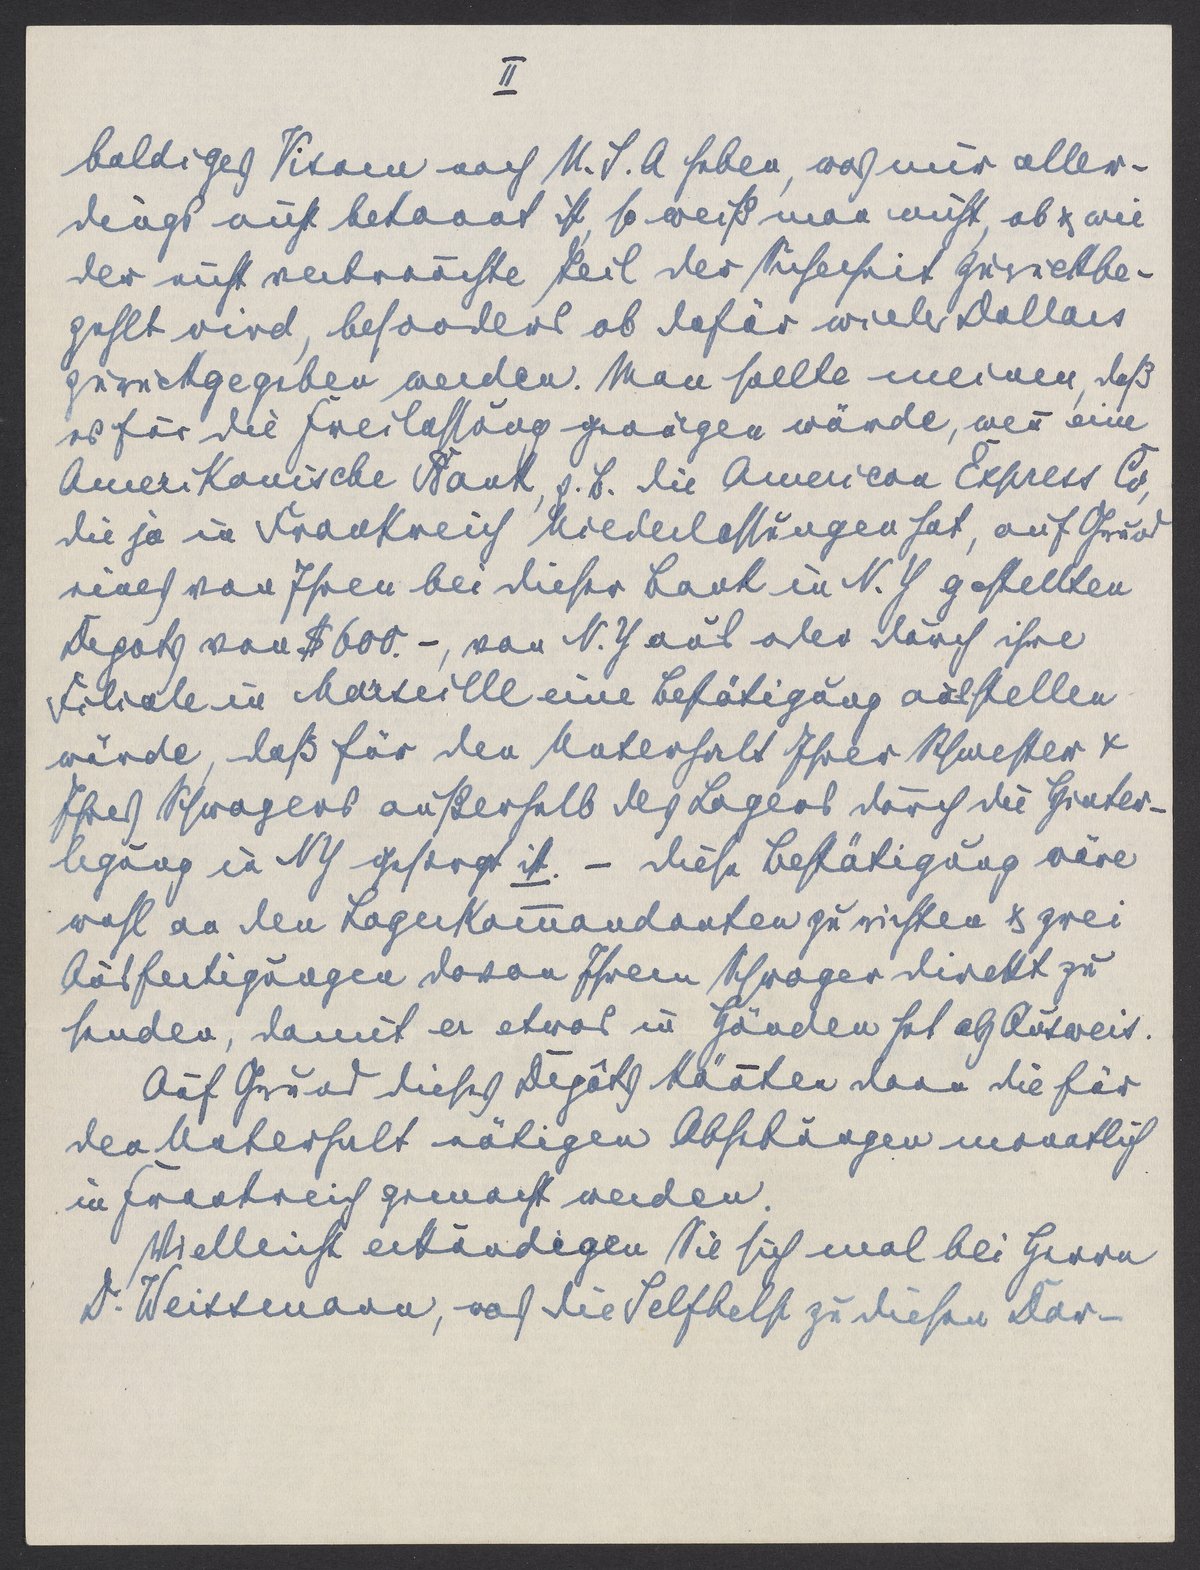 II
baldiges Visum nach U.S.A haben, was mir aller-
dings nicht bekannt ist, so weiß man nicht, ob & wie
der nicht verbrauchte Teil der Sicherheit zurückbe-
zahlt wird, besonders ob dafür wieder Dollars
zurückgegeben werden. Man sollte meinen, daß
es für die Freilassung genügen würde, wen̄ eine
Amerikanische Bank, z.B. die American Express Co,
die ja in Frankreich Niederlassungen hat, auf Grund
eines von Ihnen bei dieser Bank in N.Y gestellten
Depots von $600.–, von N.Y aus oder durch ihre
Filiale in Marseille eine Bestätigung ausstellen
würde, daß für den Unterhalt Ihrer Schwester &
Ihres Schwagers außerhalb des Lagers durch die Hinter-
legung in NY gesorgt ist. – diese Bestätigung wäre
wohl an den Lagerkom̄andanten zu richten & zwei
Ausfertigungen davon Ihrem Schwager direkt zu
senden, damit er etwas in Händen hat als Ausweis.
Auf Grund dieses Depôts kön̄ten dann die für
den Unterhalt nötigen Abhebungen monatlich
in Frankreich gemacht werden.
Vielleicht erkundigen Sie sich mal bei Herrn
D. Weissmann, was die Selfhelp zu diesen Dar-